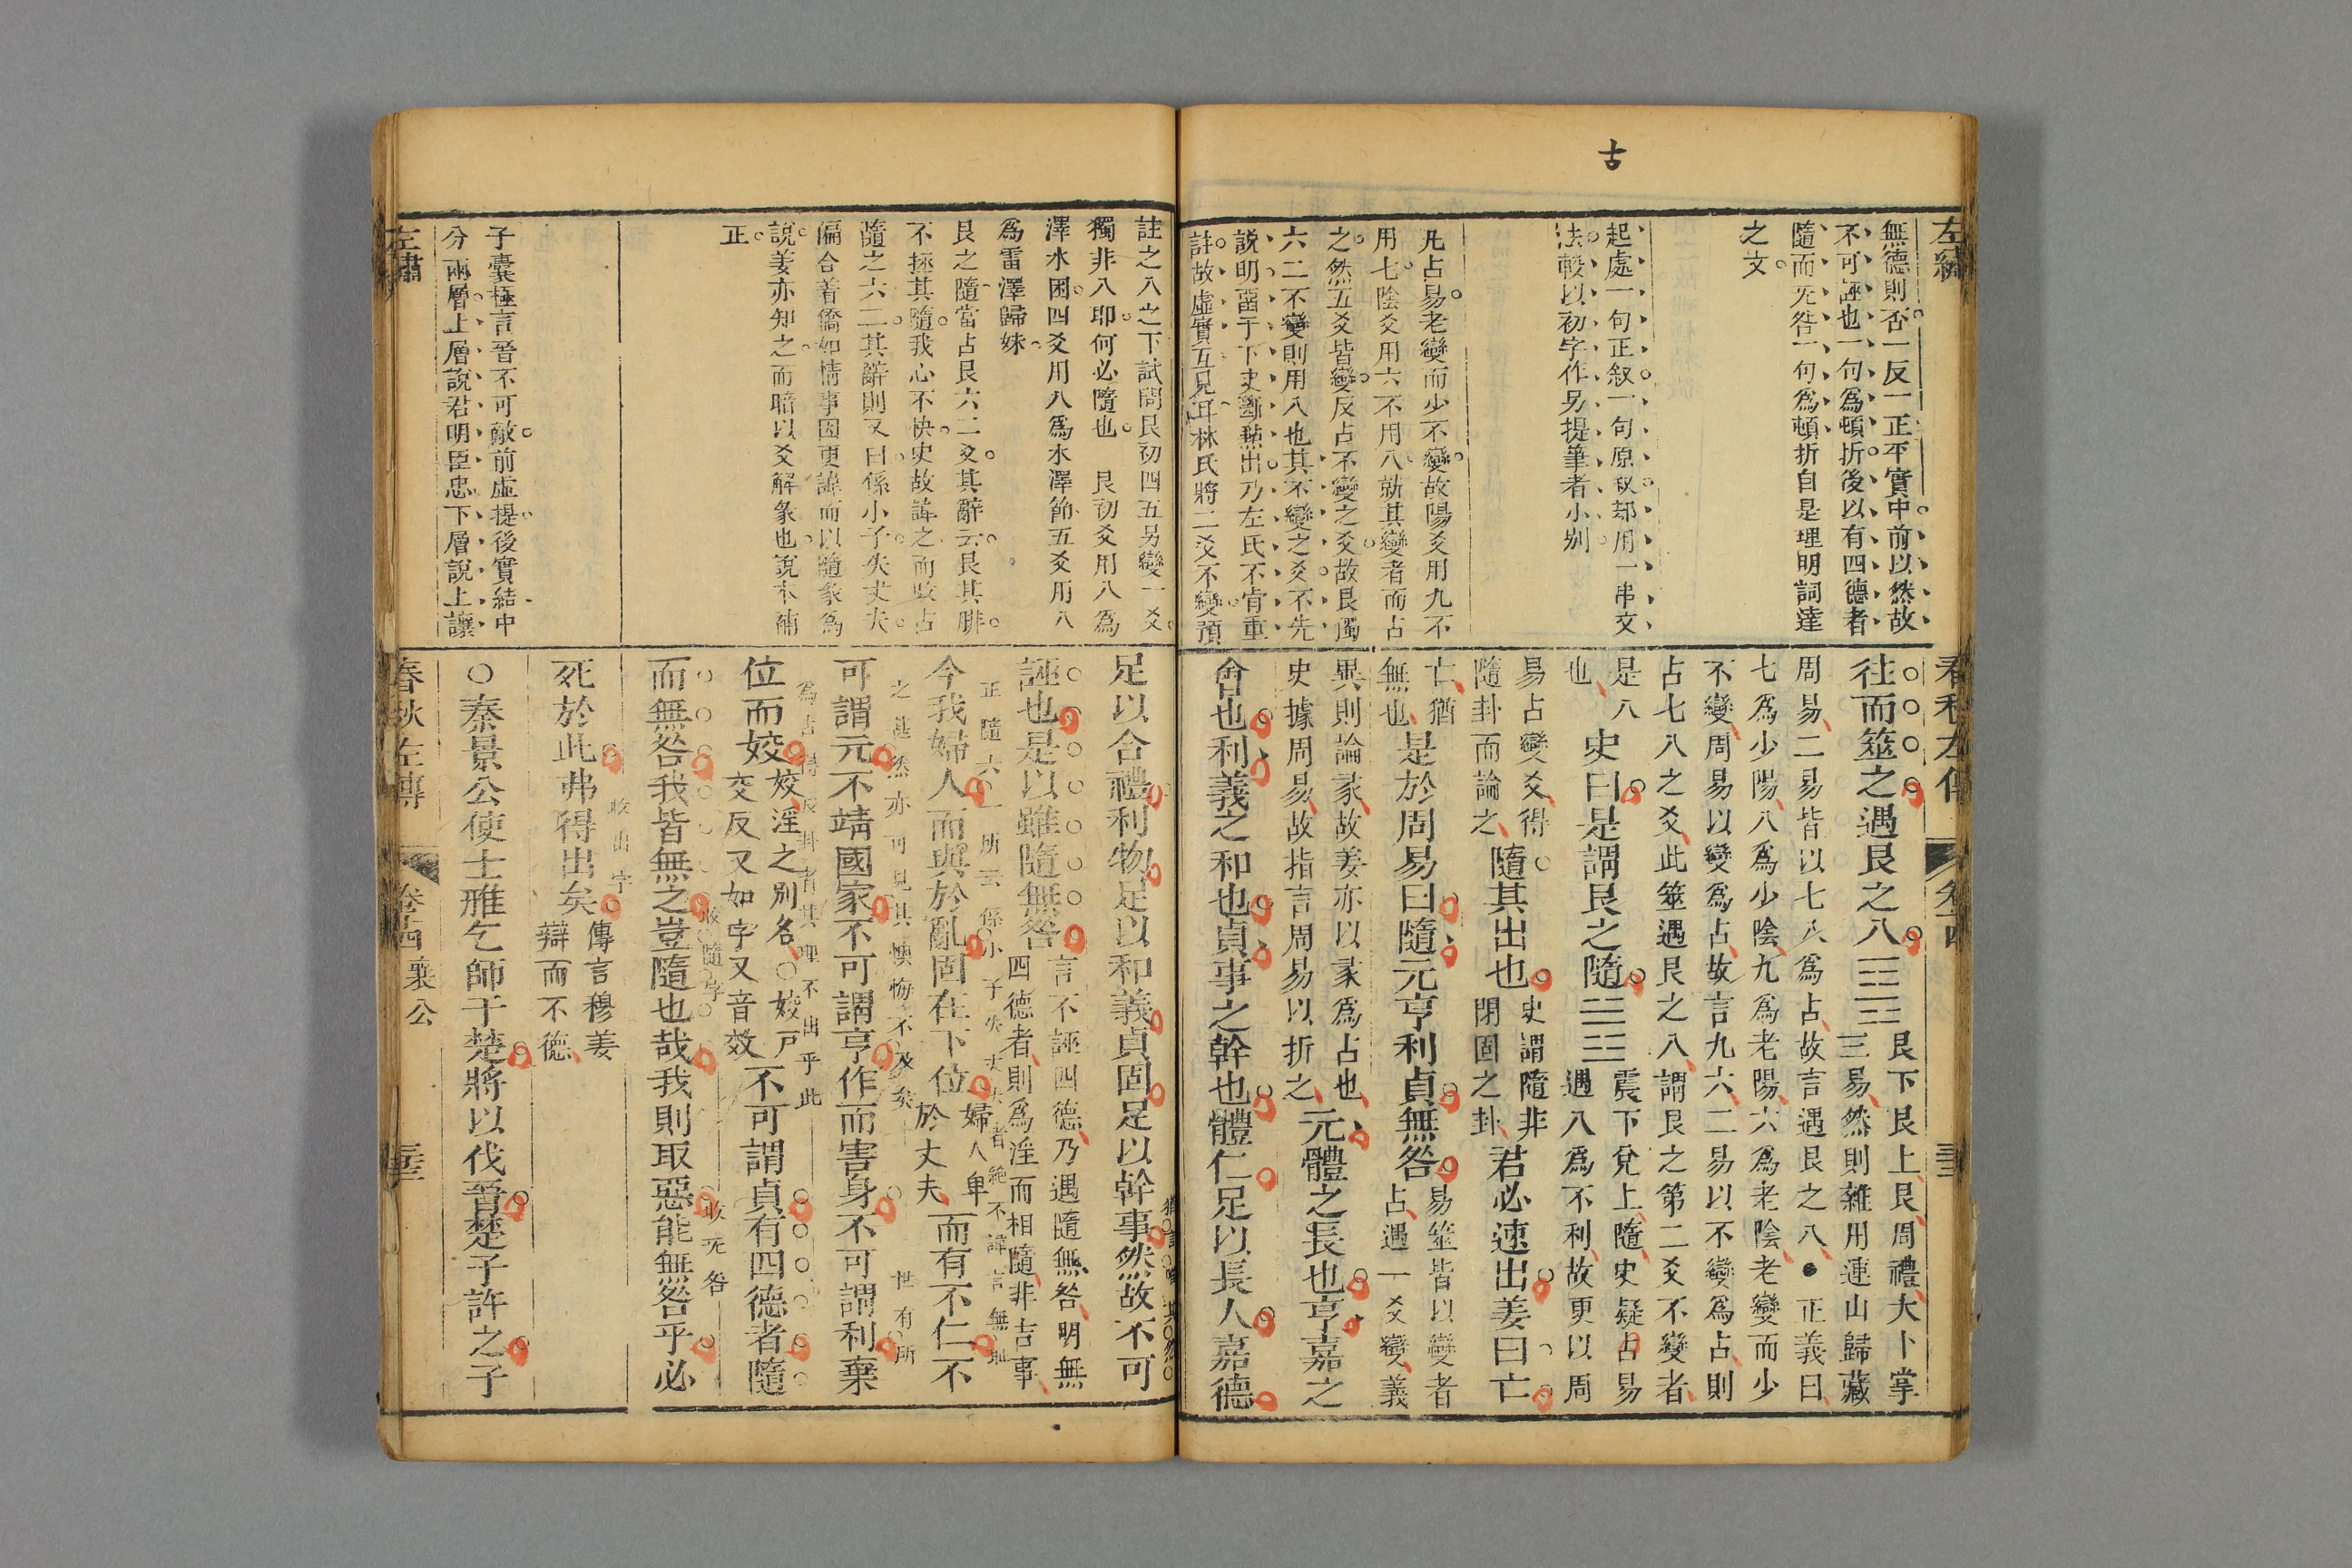 古
左繡
無德則否一反一正平實中前以然故
不可誣也一句為頓折後以有四德者
隨而无咎一句為頓折自是理明詞達
之文
起處一句正叙一句原叙却用一串文
法較以初字作另提筆者小別
凡占易老變而少不變故陽爻用九不
用七陰爻用六不用八就其變者而占
之然五爻皆變反占不變之爻故艮獨
六二不變則用八也其不變之爻不先
說明畱于下史斷㸃出乃左氏不肯重
註故虛實互見耳林氏將二爻不變預
春秋左傳
卷十四
往而筮之遇艮之八☶☶艮下艮上艮周禮大卜掌
三易然則雜用連山歸藏
周易二易皆以七八為占故言遇艮之八●正義曰
七為少陽八為少陰九為老陽六為老陰老變而少
不變周易以變為占故言九六二易以不變為占則
占七八之爻此筮遇艮之八謂艮之第二爻不變者
是八
也
史曰是謂艮之隨☳☱震下兌上隨史疑占易
遇八為不利故更以周
易占變爻得
隨卦而論之
隨其出也史謂隨非
閉固之卦
君必速出姜曰亡
亡猶
無也
是於周易曰隨元亨利貞無咎易筮皆以變者
占遇一爻變義
異則論彖故姜亦以彖為占也
史據周易故指言周易以折之
元體之長也亨嘉之
會也利義之和也貞事之幹也體仁足以長人嘉德
註之八之下試問艮初四五另變一爻
獨非八耶何必隨也　艮初爻用八為
澤水困四爻用八為水澤節五爻用八
為雷澤歸妹
艮之隨當占艮六二爻其辭云艮其腓
不拯其隨我心不快史故諱之而取占
隨之六二其辭則又曰係小子失丈夫
偏合着僑如情事因更諱而以隨彖為
說姜亦知之而暗以爻解彖也說本補
正
子囊極言晉不可敵前虛提後實結中
分兩層上層說君明臣忠下層說上讓
左繡
足以合禮利物足以和義貞固足以幹事然故不可
誣也是以雖隨無咎言不誣四德乃遇隨無咎明無
四德者則為淫而相隨非吉事
正隨六二所云係小子失丈夫者絕不諱言無恥
今我婦人而與於亂固在下位婦人卑
於丈夫
而有不仁不
之甚然亦可見其懊悔不及矣
世有所
可謂元不靖國家不可謂亨作而害身不可謂利棄
為占得反卦者其理不出乎此
位而姣姣淫之別名○姣戶
交反又如字又音效
不可謂貞有四德者隨
收隨字
收无咎
而無咎我皆無之豈隨也哉我則取惡能無咎乎必
收出字
死於此弗得出矣傳言穆姜
辯而不德
○秦景公使士雃乞師于楚將以伐晉楚子許之子
春秋左傳
卷十四
襄公